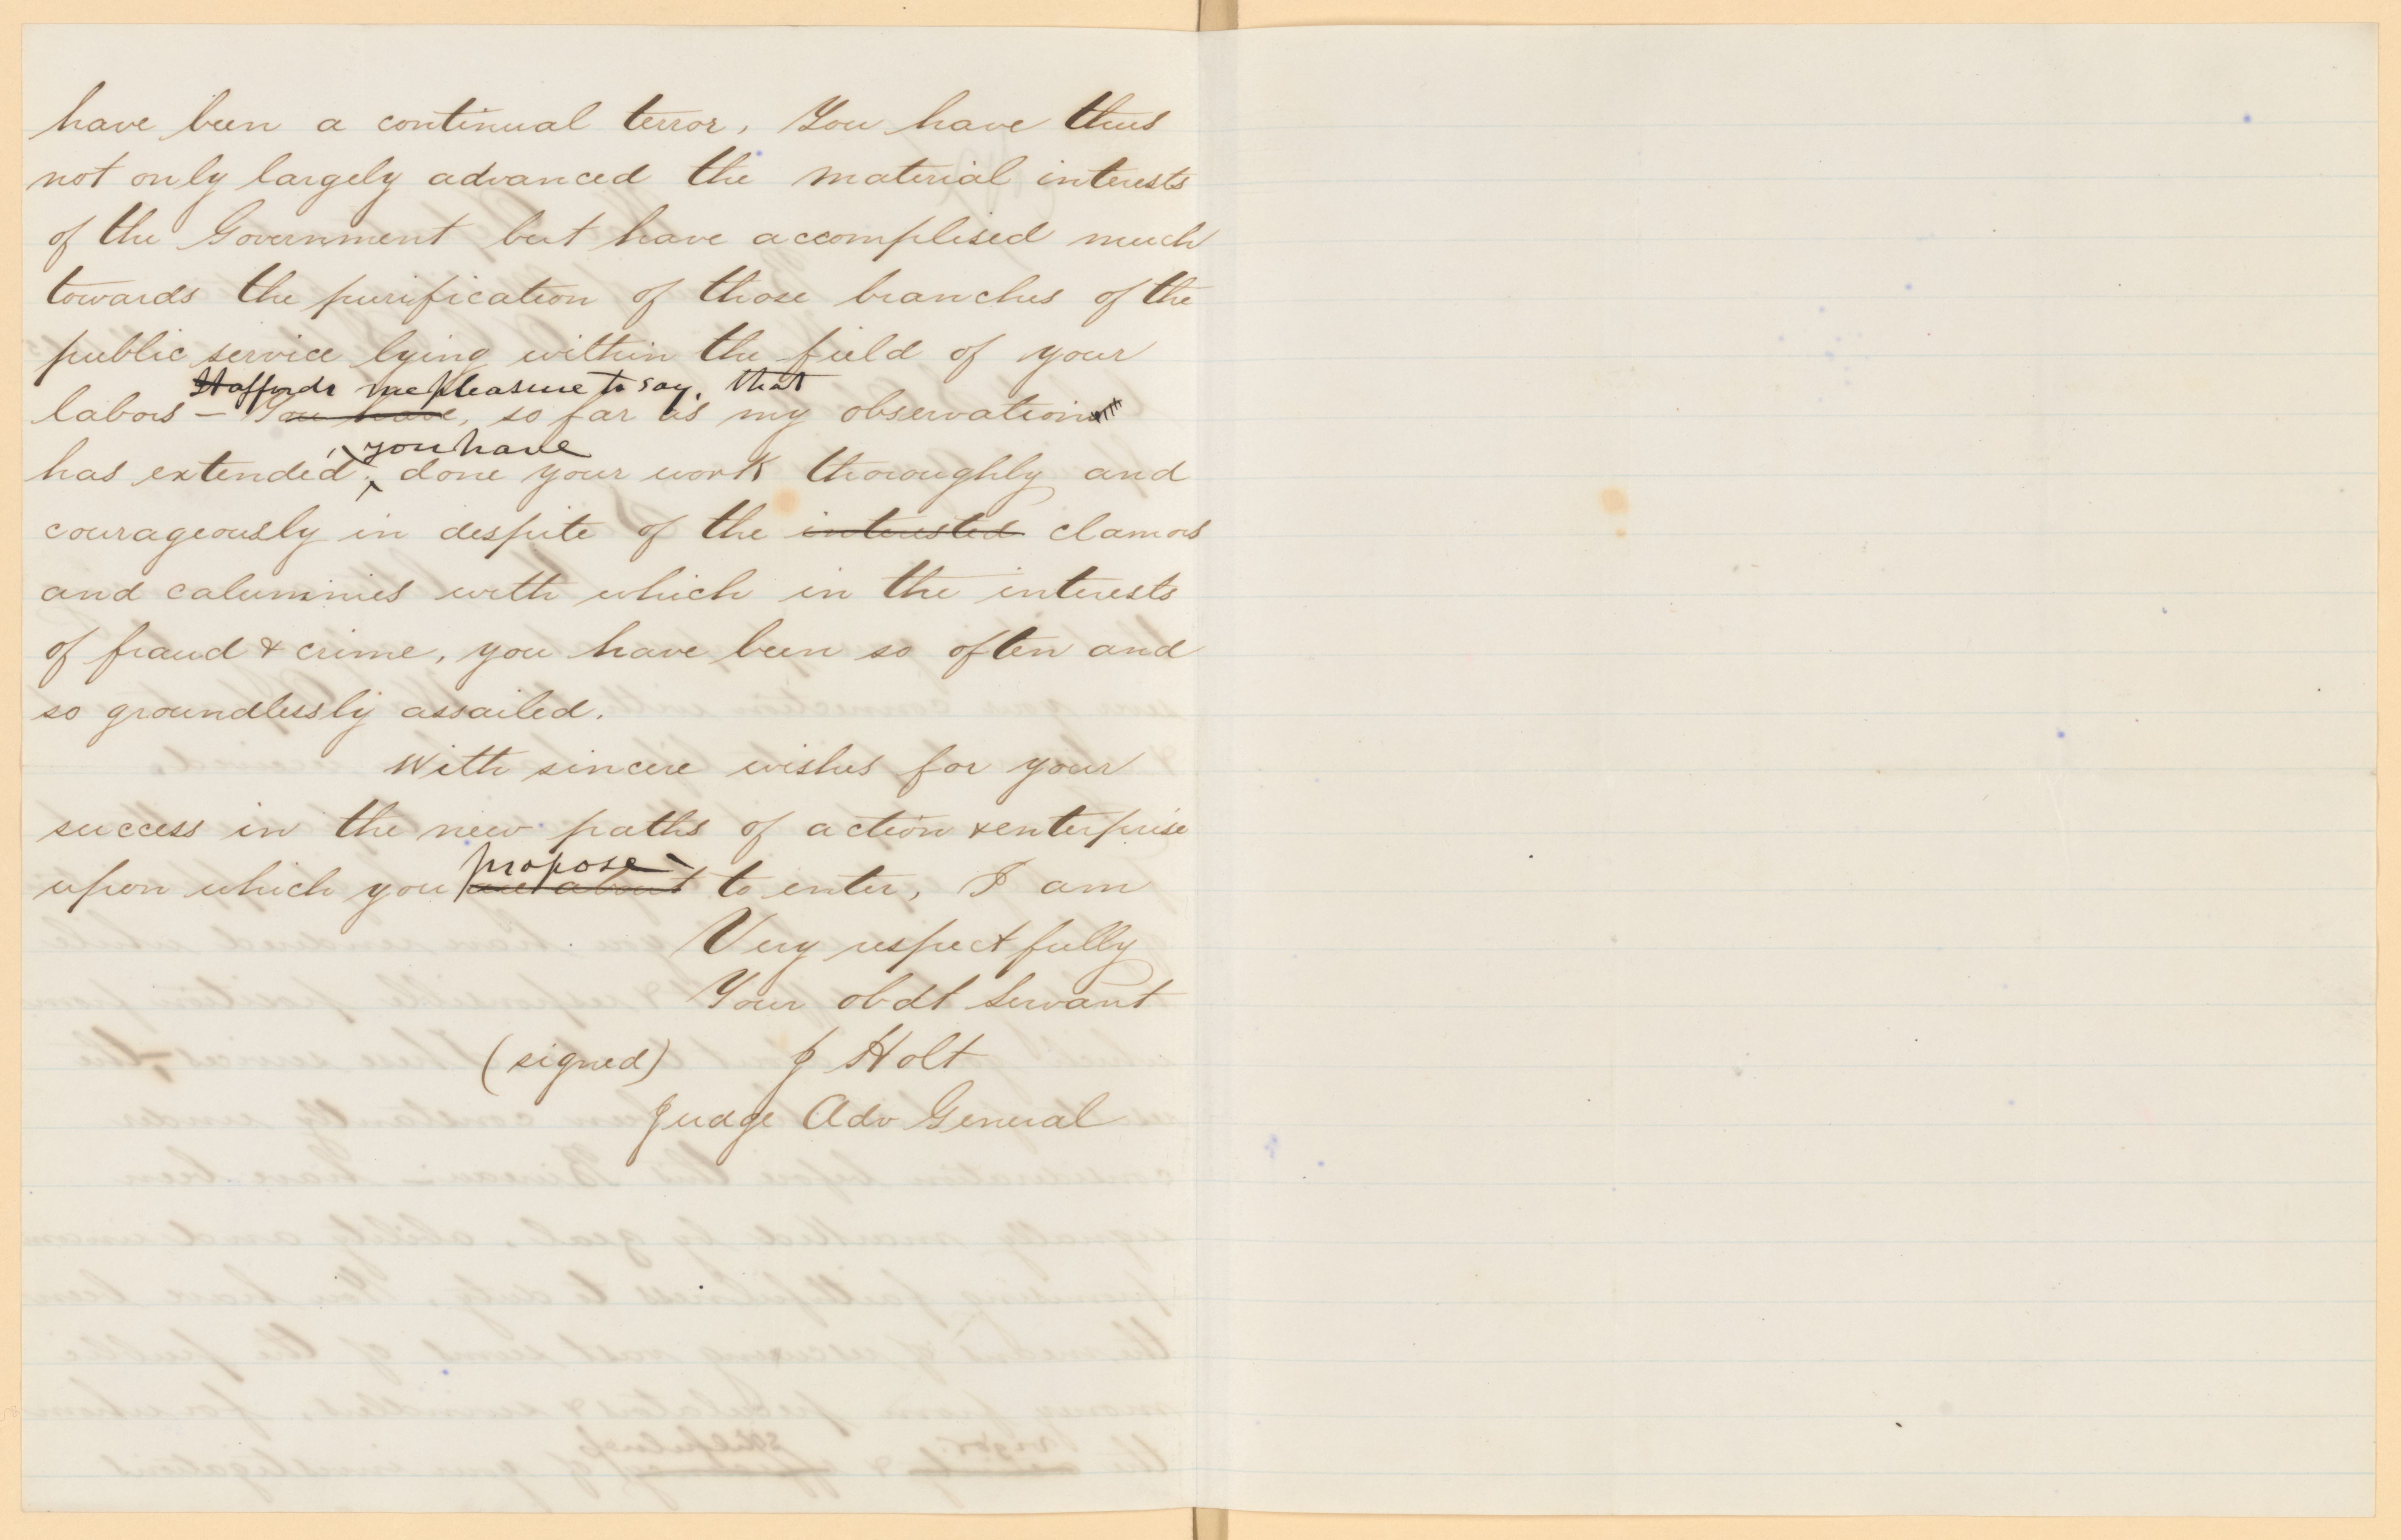 have been a continual terror. You have thus
not only largely advanced the material interests
of the Government but have accomplised much
towards the purification of those branches of the
public service lying within the field of your
It affords me pleasure to say, that
labors — You have, so far as my observation
you have
has extended, done your work thoroughly and
courageously in despite of the interested clamors
and calumnies with which in the interests
of fraud & crime, you have been so often and
so groundlessly assailed.
With sincere wishes for your
success in the new paths of action & enterprise
propose
upon which you are about to enter, I am
Very respectfully
Your obdt servant
(signed) J Holt
Judge Adv General